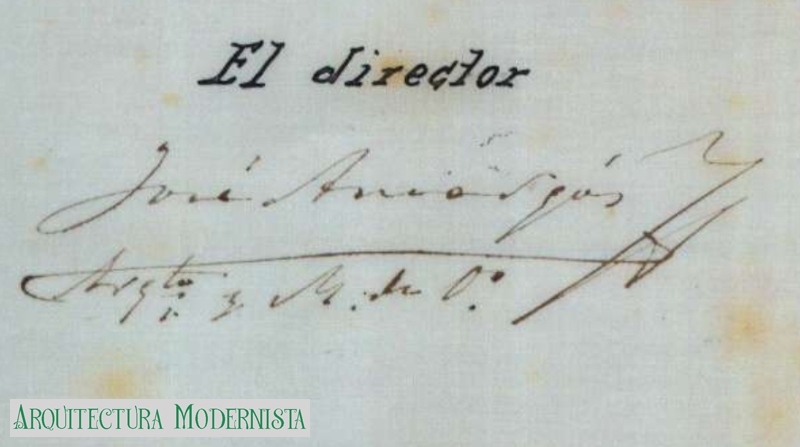 El director
José Amargós
Arqto. y M. de O.
ARQUITECTURA MODERNISTA